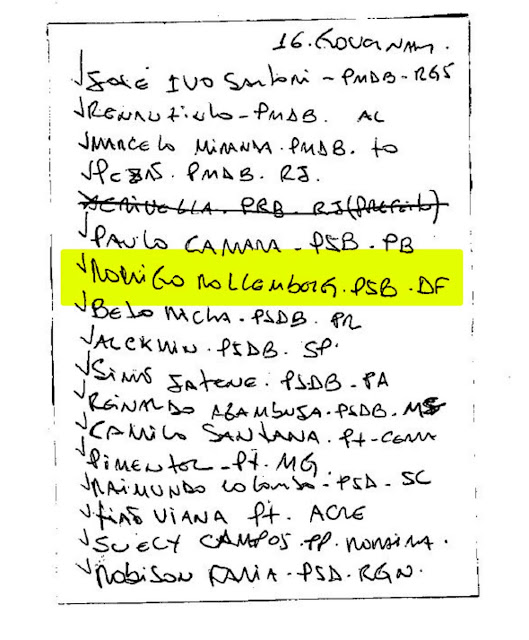 16. GOVERNAD.
√JOSÉ IVO SARTORI - PMDB - RGS
√RENANZINHO - PMDB. AL
√MARCELO MIRANDA. PMDB. TO
√PEZÃO. PMDB. RJ.
√CRIVELLA. PRB. RJ (PREFEITO)
√PAULO CAMARA - PSB - PB
√RODRIGO ROLLEMBERG. PSB. DF
√BETO RICHA. PSDB. PR
√ALCKMIN. PSDB. SP.
√SIMÃO JATENE. PSDB - PA
√REINALDO AZAMBUJA. PSDB. MS
√CAMILO SANTANA. PT - CEARA
√PIMENTEL - PT. MG
√RAIMUNDO COLOMBO - PSD - SC
√TIÃO VIANA PT. ACRE
√SUELY CAMPOS. PP. RORAIMA.
√ROBISON FARIA - PSD. RGN.